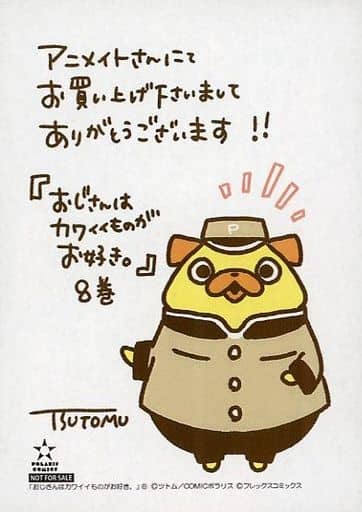 アニメイトさんにて
お買い上げ下さいまして
ありがとうございます!!
『おじさんは
カワイイものが
お好き。』
8巻
P
TSUTOMU
POLARIS
COMICS
NOT FOR SALE
「おじさんはカワイイものがお好き。」⑧ ©ツトム/COMICポラリス ©フレックスコミックス